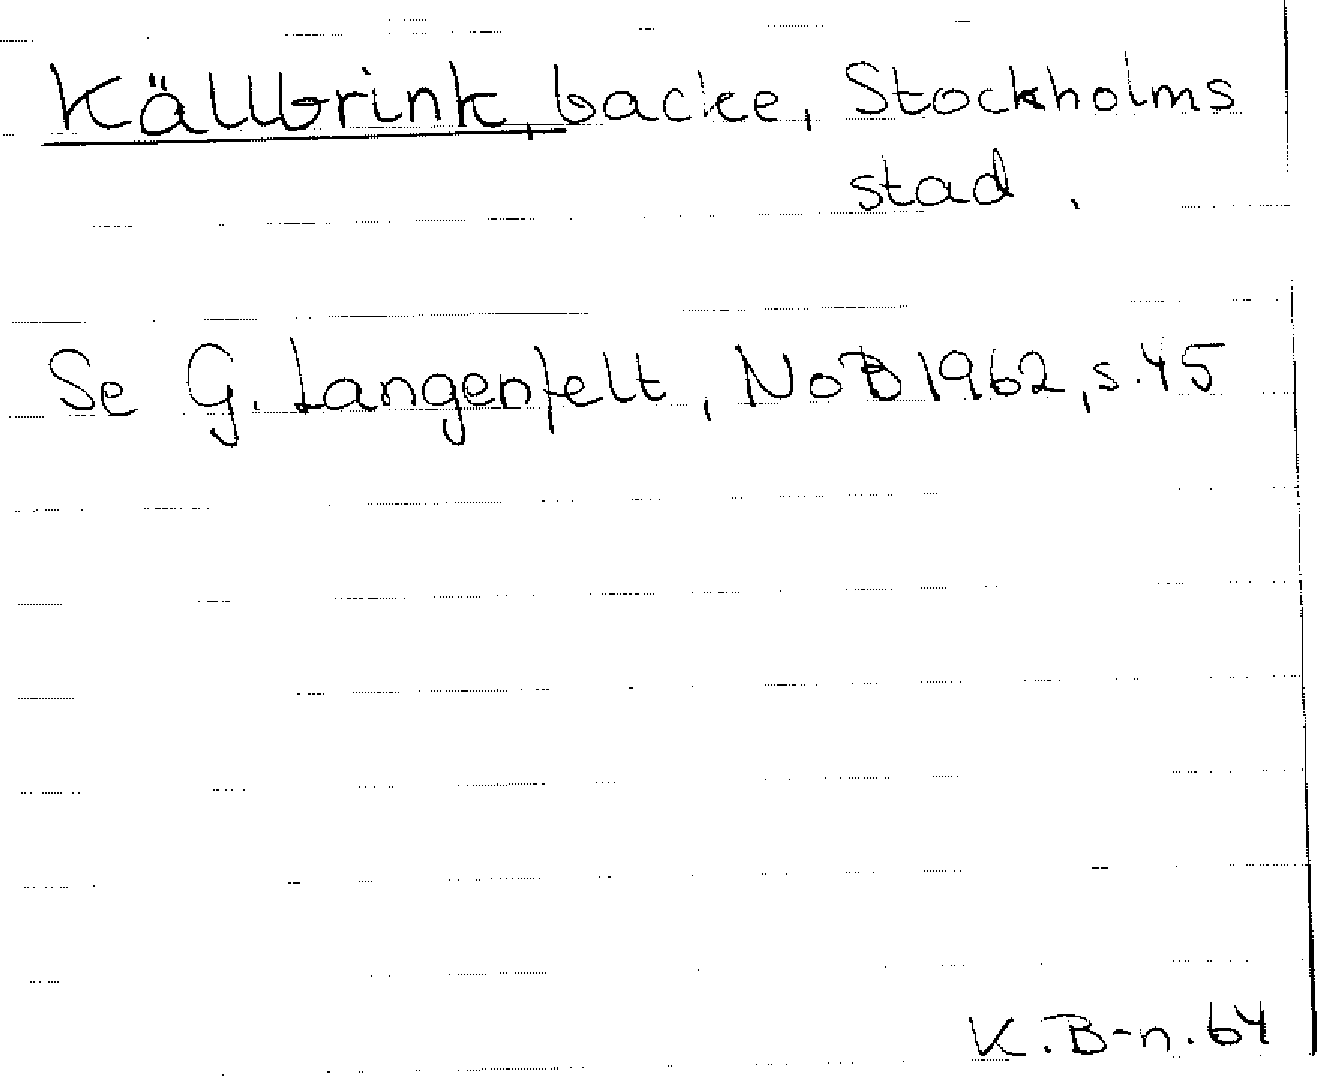 Källbrink, backe, Stockholms
stad.
Se G. Langenfelt, NoB 1962, s. 45
K. B-n. 64